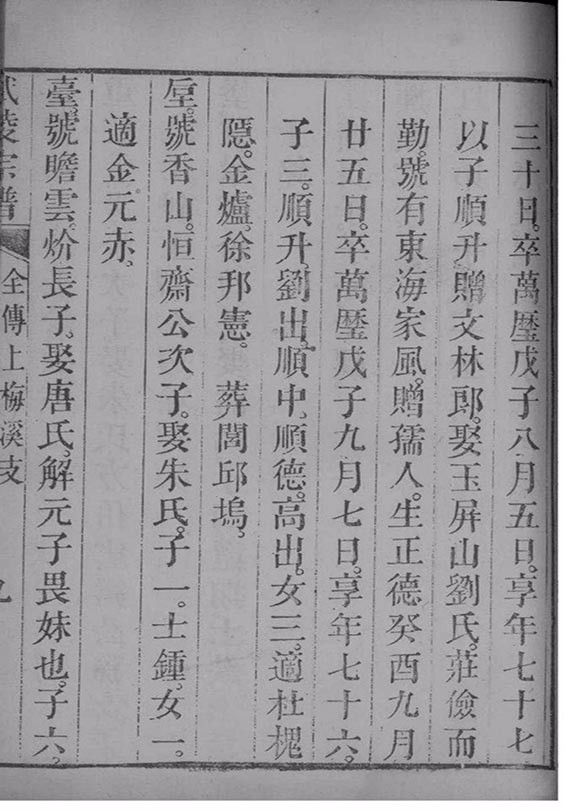 三十日。卒萬曆戊子八月五日。享年七十七
以子順升。贈文林郎。娶玉屏山劉氏。莊儉而
勤。號有東海家風。贈孺人。生正德癸酉九月
廿五日。卒萬曆戊子九月七日。享年七十六。
子三。順升。劉出。順中。順德。高出。女三。適杜槐
隱。金爐。徐邦憲。葬閭邱塢。
垕。號香山。恒齋公次子。娶朱氏。子一。士鍾。女一。
適金元赤。
臺。號瞻雲。炌長子。娶唐氏。解元子畏妹也。子六。
武陵宗譜 全傳上梅溪支